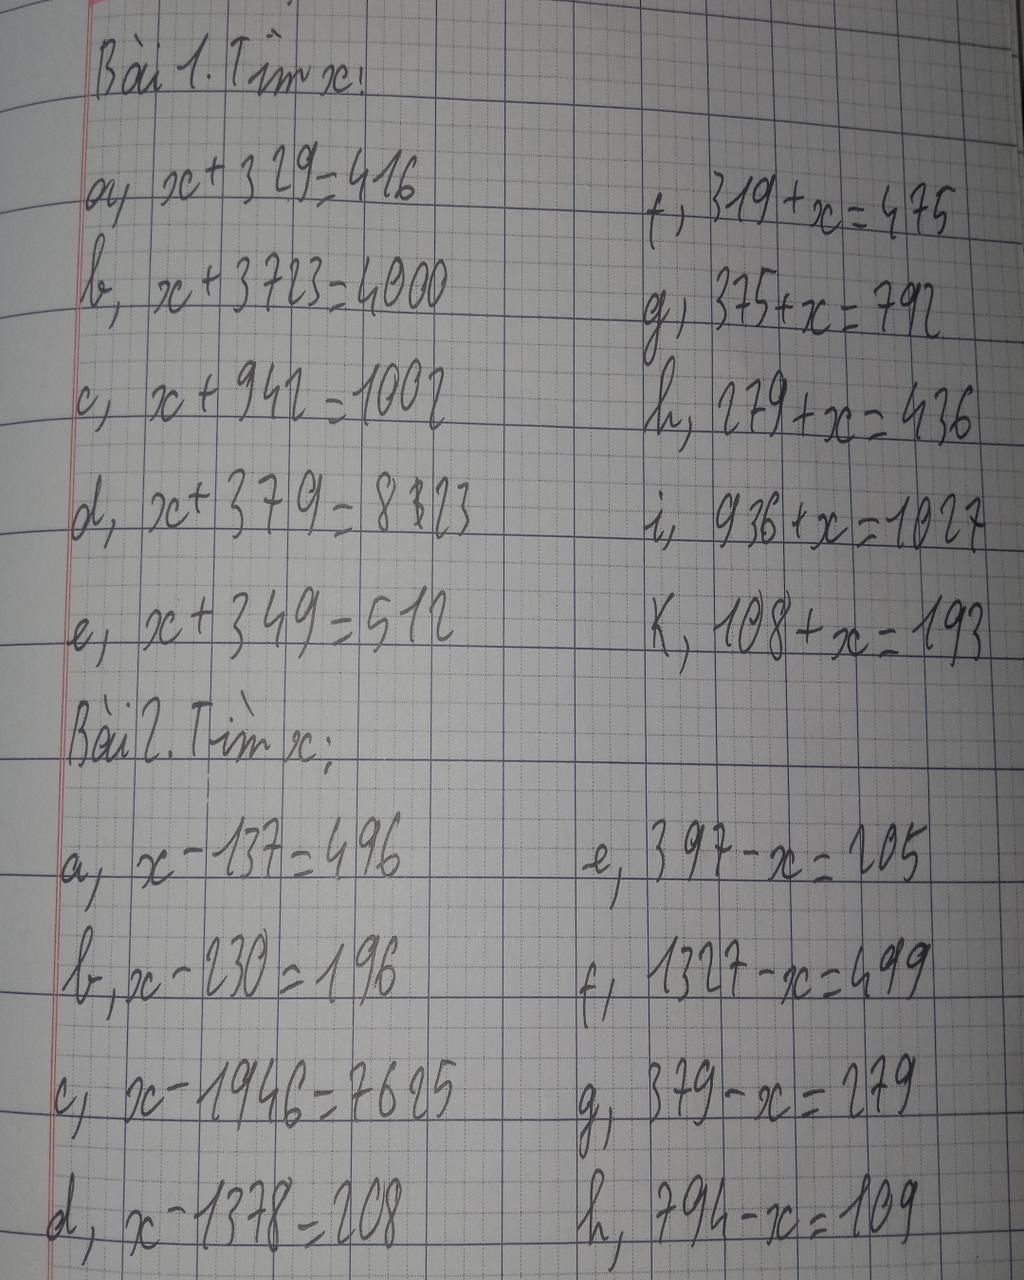 Bài 1. Tìm x:
a, x + 329 = 416
b, x + 3723 = 4000
c, x + 942 = 1002
d, x + 379 = 8123
e, x + 349 = 512
f, 319 + x = 475
g, 375 + x = 792
h, 279 + x = 436
i, 936 + x = 1027
K, 108 + x = 193
Bài 2. Tìm x:
a, x - 137 = 496
b, x - 230 = 196
c, x - 1946 = 7625
d, x - 1378 = 208
e, 397 - x = 205
f, 1327 - x = 499
g, 379 - x = 279
h, 794 - x = 109